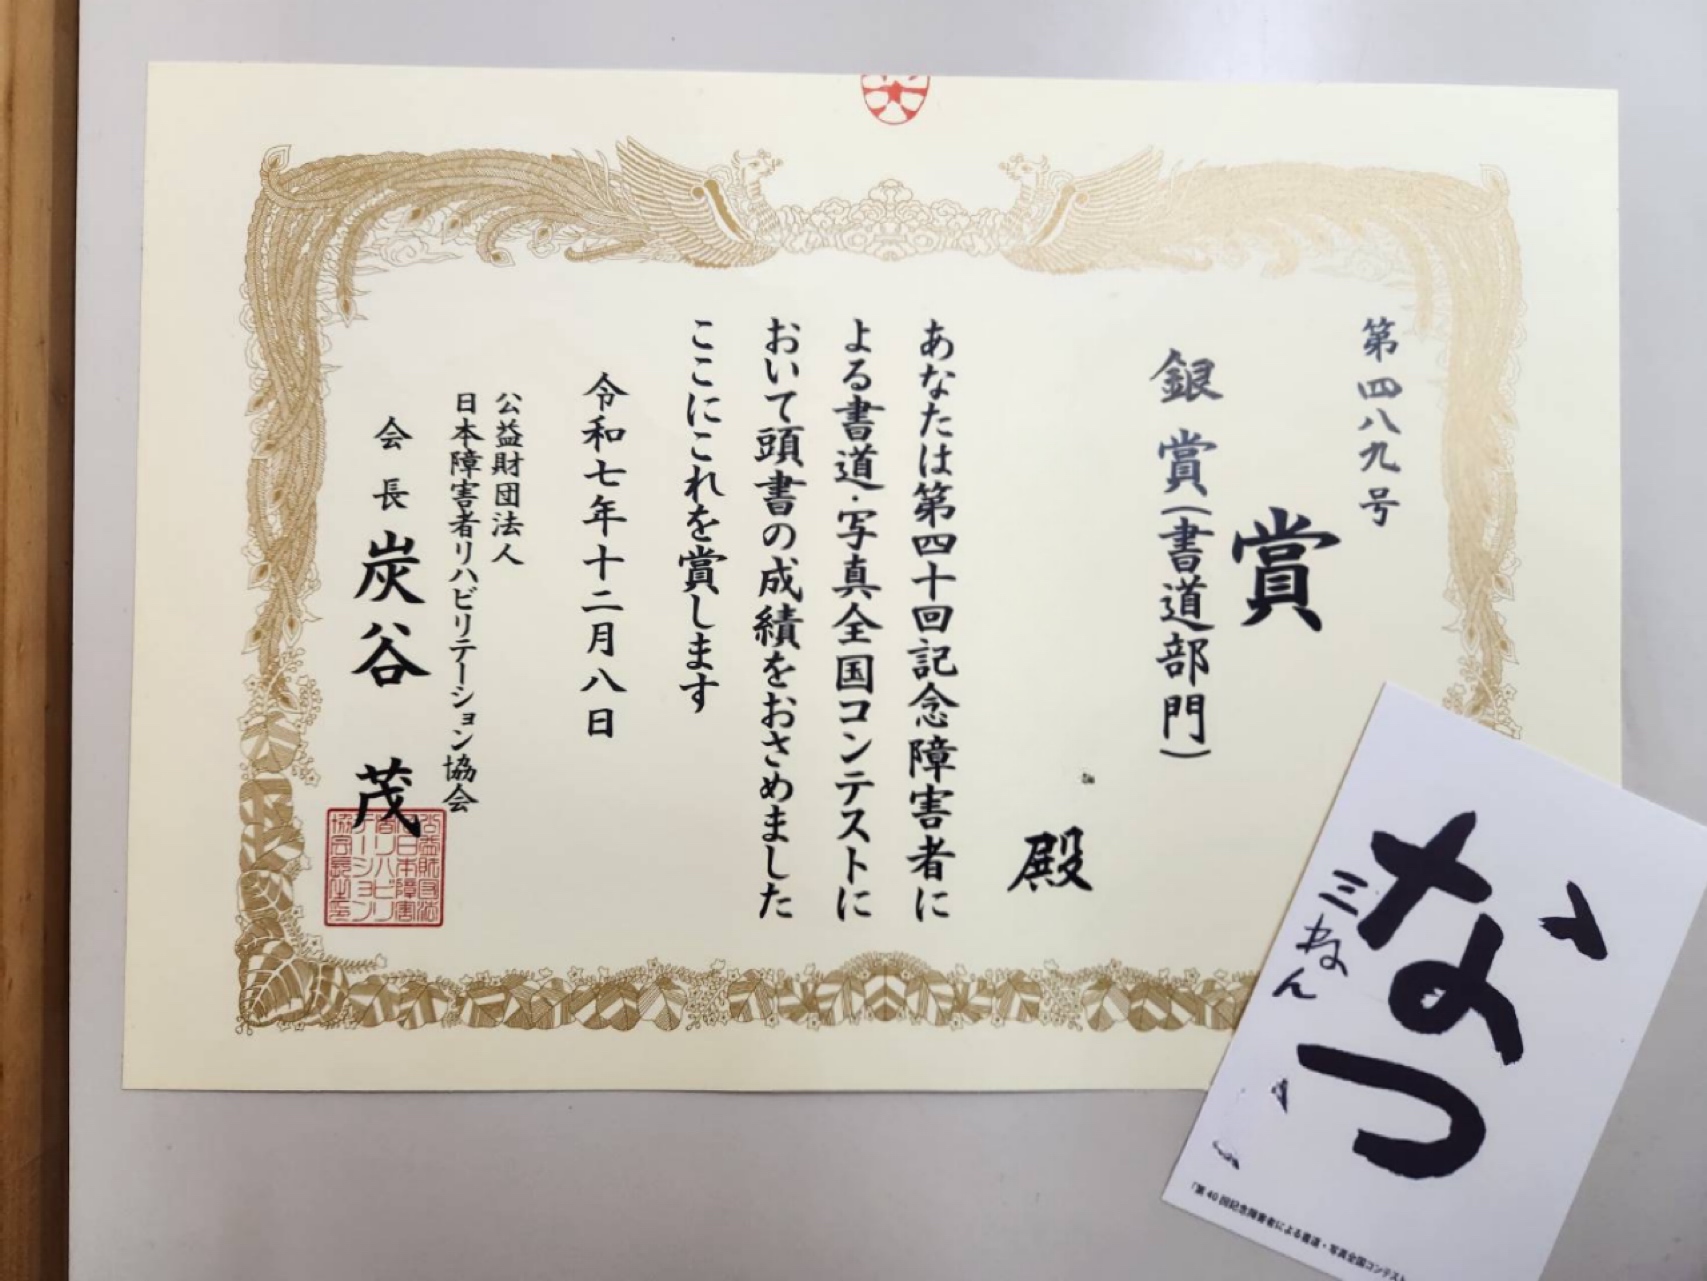 第四八九号
賞
銀賞(書道部門)
殿
あなたは第四十回記念障害者に
よる書道・写真全国コンテストに
おいて頭書の成績をおさめました
ここにこれを賞します
令和七年十二月八日
公益財団法人
日本障害者リハビリテーション協会
会長 炭谷 茂
なつ
三ねん
「第40回記念障害者による書道・写真全国コンテスト